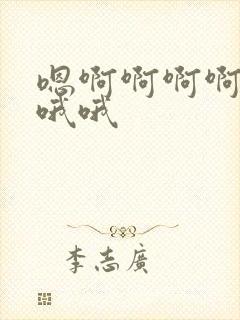 嗯啊啊啊啊
哦哦
李志廣